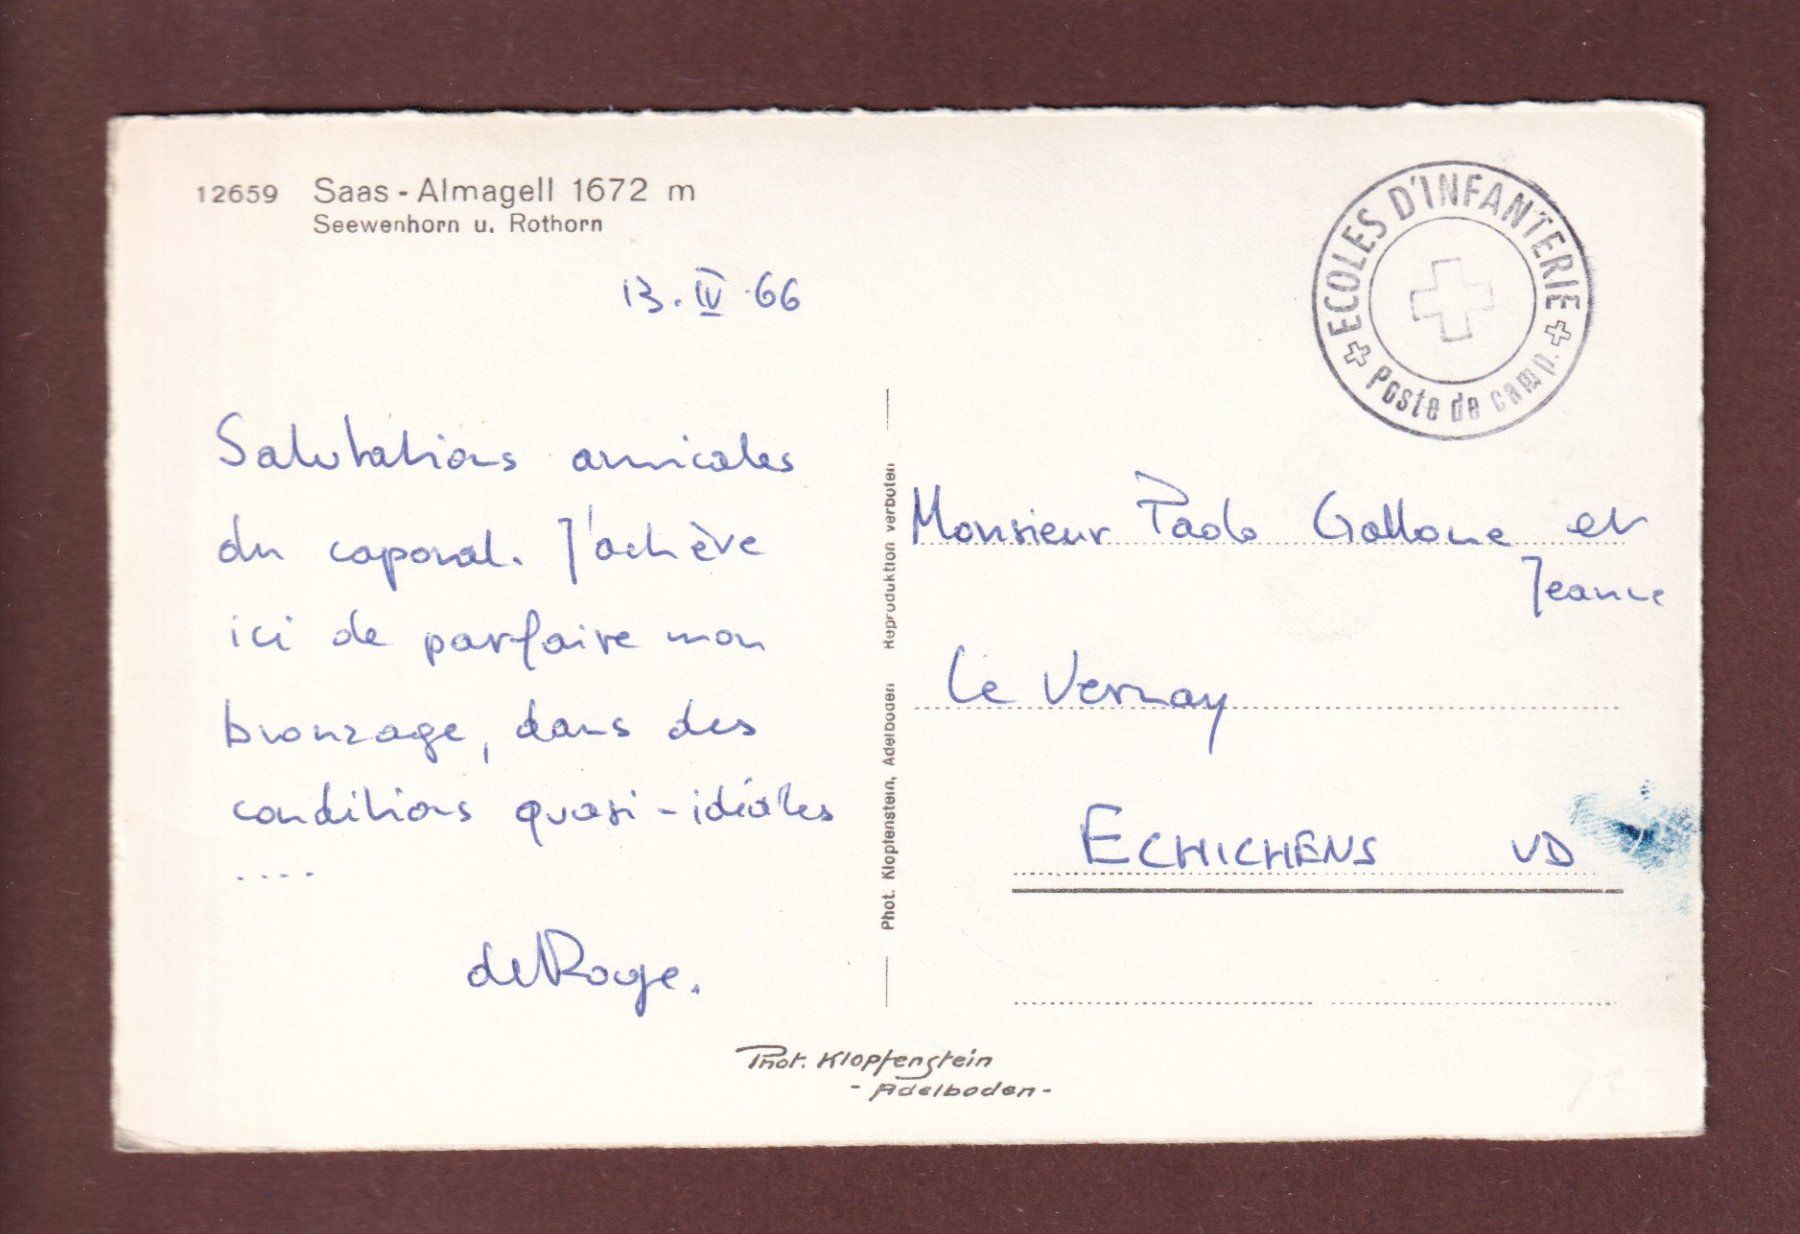 12659 Saas - Almagell 1672 m
Seewenhorn u. Rothorn
13. IV. 66
Salutations amicales
du caporal. J'achève
ici de parfaire mon
bronzage, dans des
conditions quasi-idéales
....
deRouge.
Phot. Klopfenstein
- Adelboden -
Phot. Klopfenstein, Adelboden Reproduktion verboten
ECOLES D'INFANTERIE
Poste de camp.
Monsieur Paolo Gallone et
Jeanne
Le Vernay
ECHICHENS VD